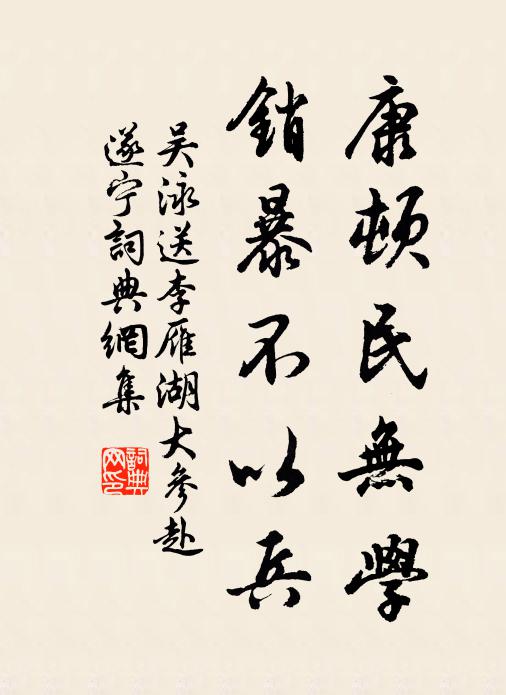 康頓民無學
銷暴不以兵
吴泳送李雁湖大參赴
遂宁詞典網集
詞典網印